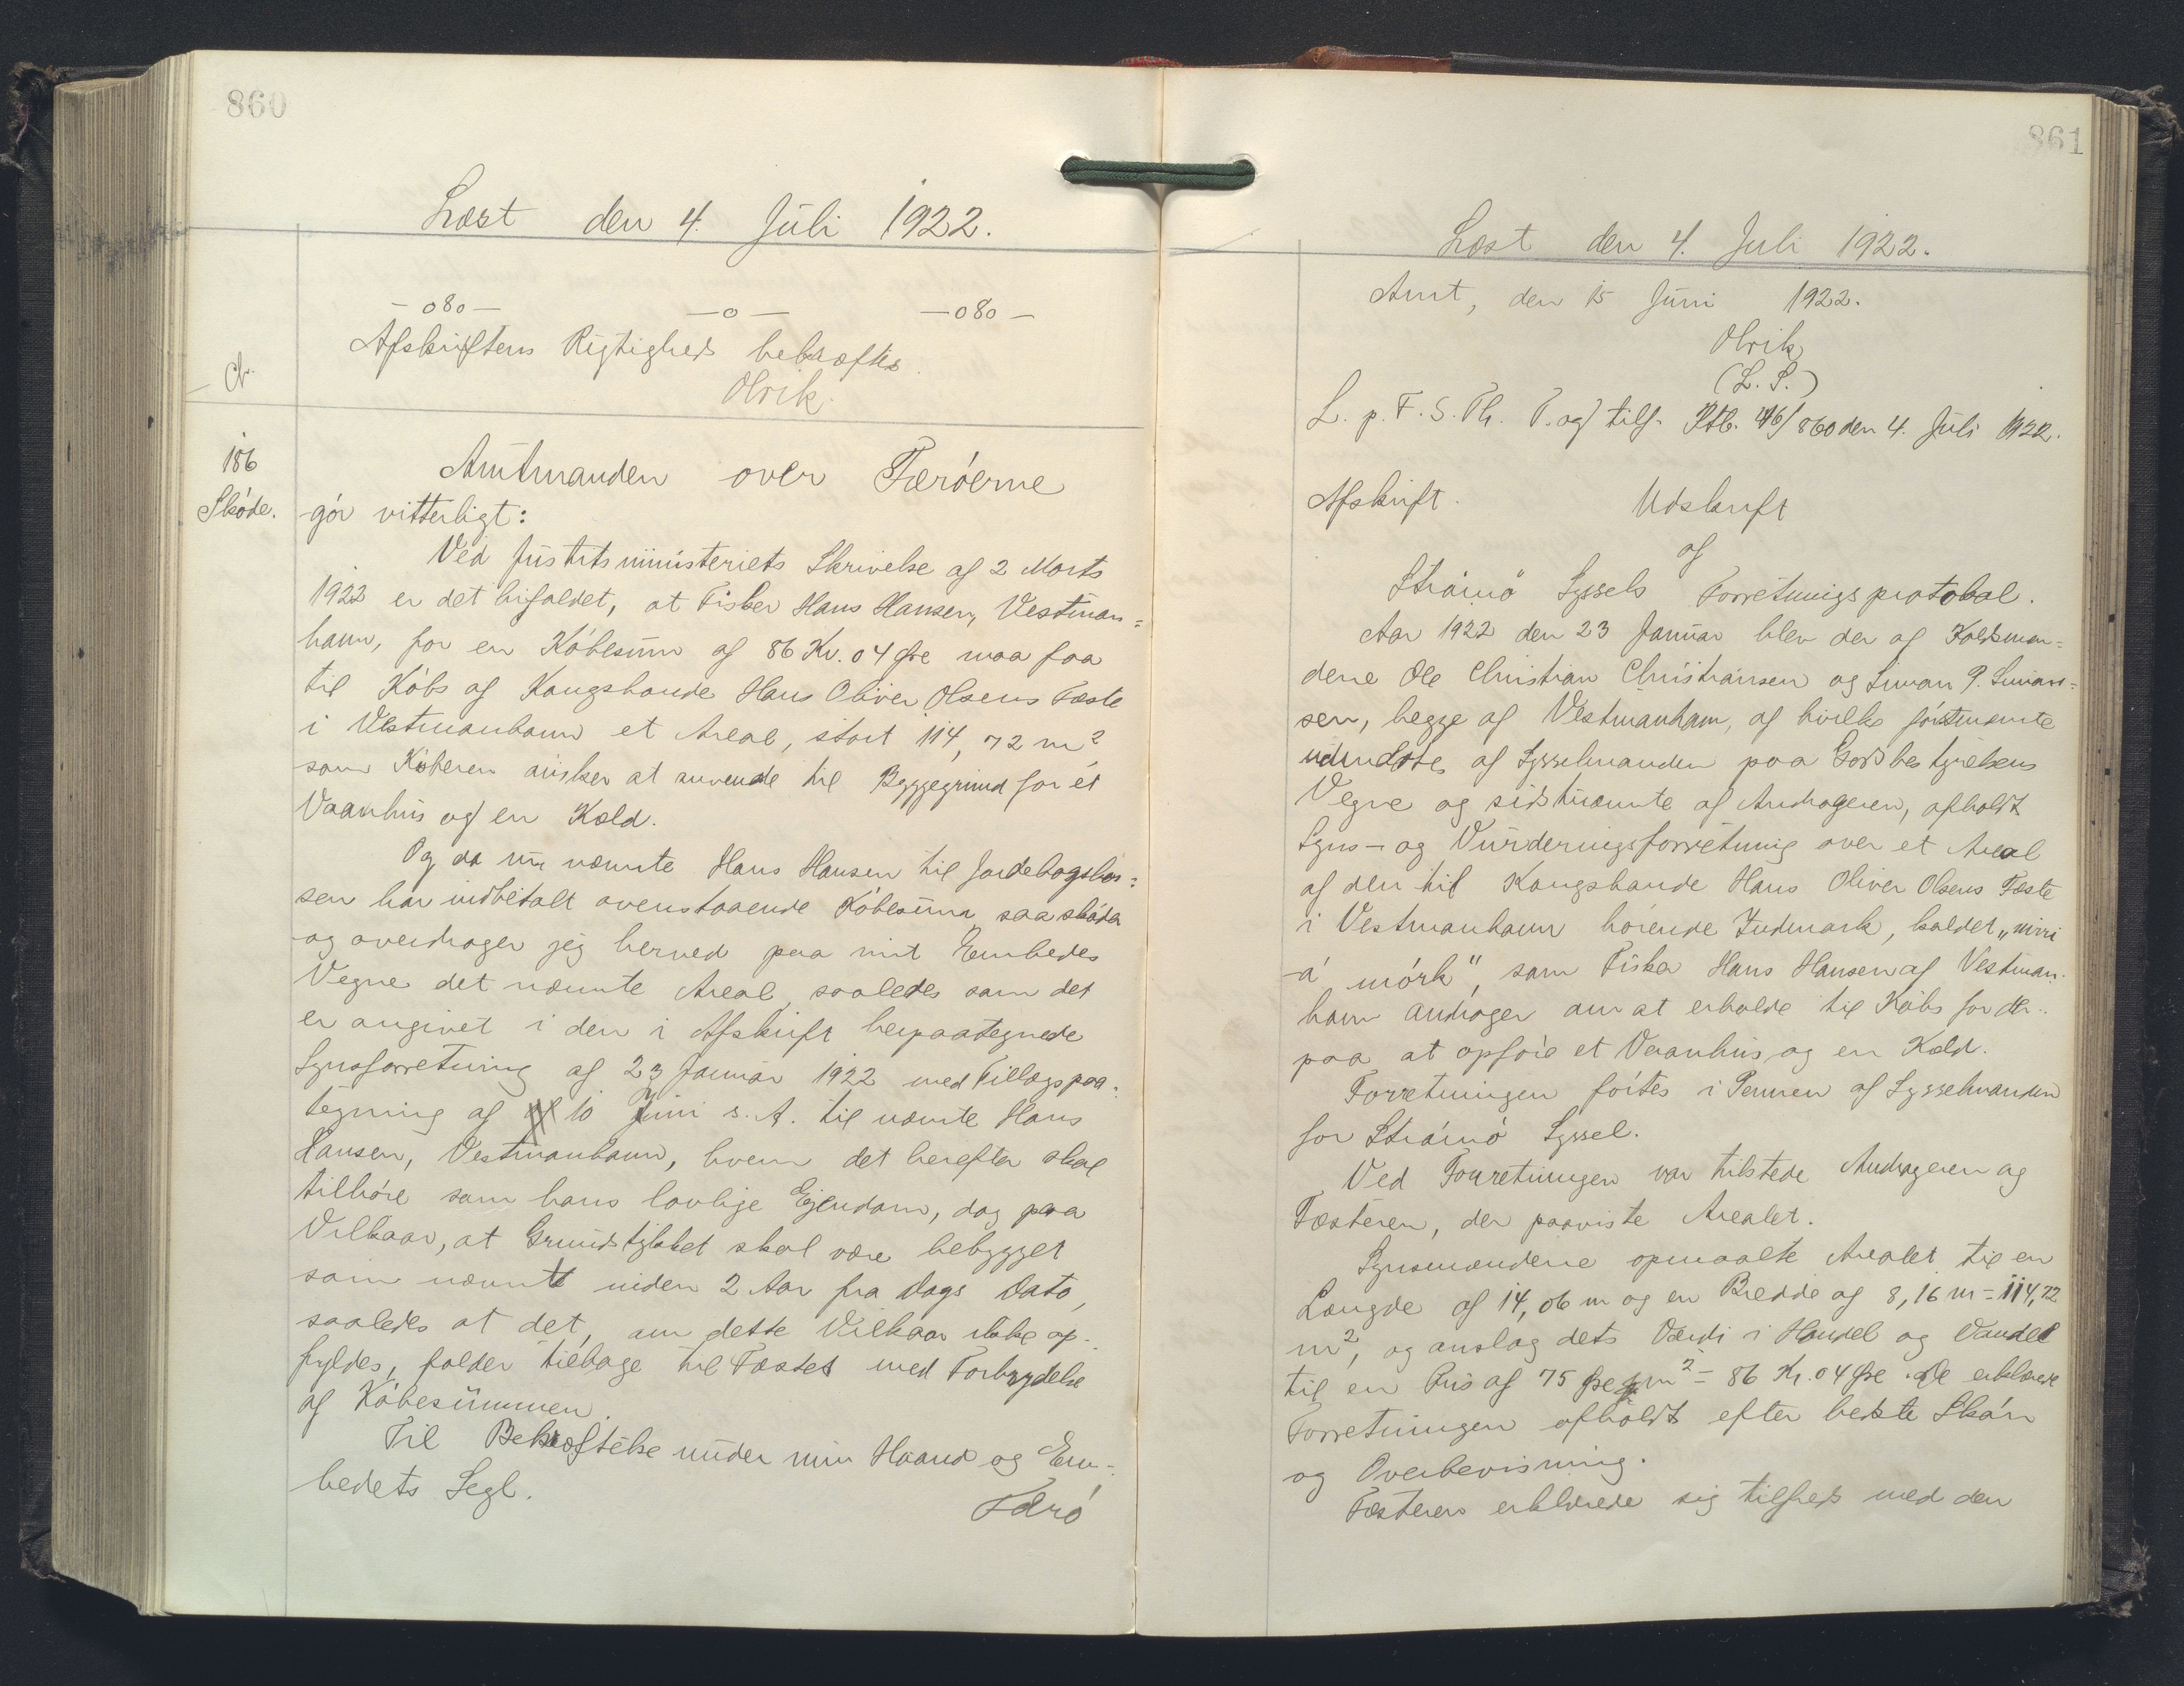 860
Læst den 4. Juli 1922.
- o8o - - o - - o8o -
Afskriftens Rigtighed bekræftes.
Olrik.
186
Skóde.
Amtmanden over Færóerne
gór vitterligt:
Ved Justitsministeriets Skrivelse af 2 Marts
1922 er det bifaldet, at Fisker Hans Hansen, Vestman=
havn, for en Kóbesum af 86 Kr. 04 Øre maa faa
til Købs af Kongsbonde Hans Oliver Olsens Fæste
i Vestmanhavn et Areal, stort 114,72 m²
som Køberen ønsker at anvende til Byggegrund for et
Vaanhus og en Kæld.
Og da nu nævnte Hans Hansen til Jordebogskas=
sen har indbetalt ovenstaaende Kóbesum, saa skóder
og overdrager jeg herved paa mit Embedes
Vegne det nævnte Areal, saaledes som det
er angivet i den i Afskrift herpaategnede
Synsforretning af 23 Januar 1922 med Tillægspaa=
tegning af 10 Juni s. A. til nævnte Hans
Hansen, Vestmanhavn, hvem det herefter skal
tilhóre som hans lovlige Ejendom, dog paa
Vilkaar, at Grundstykket skal være bebygget
som nævnt inden 2 Aar fra Dags Dato,
saaledes at det, om dette Vilkaar ikke op-
fyldes, falder tilbage til Fæstet med Forbrydelse
af Kóbesummen.
Til Bekræftelse under min Haand og Em-
bedets Segl.
Færó
861
Læst den 4. Juli 1922.
Amt, den 15 Juni 1922.
Olrik
(L. S.)
L. p. F. S. Th. T. og tilf. Ptb. 46/860 den 4. Juli 1922.
Afskrift. Udskrift
af
Strómó Syssels Forretningsprotokol.
Aar 1922 den 23 Januar blev der af Voldsmæn=
dene Ole Christian Christiansen og Simon P. Simon=
sen, begge af Vestmanhavn, af hvilke fórstnævnte
udmeldtes af Sysselmanden paa Godsbestyrelsens
Vegne og sidstnævnte af Andrageren, afholdt
Syns- og Vurderingsforretning over et Areal
af den til Kongsbonde Hans Oliver Olsens Fæste
i Vestmanhavn hørende Indmark, kaldet „niri
á mórk", som Fisker Hans Hansen af Vestman-
havn andrager om at erholde til Købs for der-
paa at opfóre et Vaanhus og en Kæld.
Forretningen fórtes i Pennen af Sysselmanden
for Strómó Syssel.
Ved Forretningen var tilstede Andrageren og
Fæsteren, der paaviste Arealet.
Synsmændene opmaalte Arealet til en
Længde af 14,06 m og en Bredde af 8,16 m = 114,72
m², og anslog dets Værdi i Handel og Vandel
til en Pris af 75 Øre m² = 86 Kr. 04 Øre. De erklærede
Forretningen afholdt efter bedste Skón
og Overbevisning.
Fæsteren erklærede sig tilfreds med den